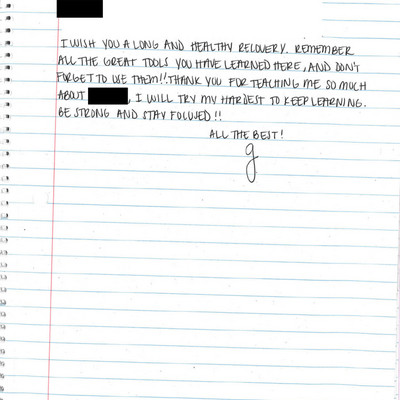 I WISH YOU A LONG AND HEALTHY RECOVERY. REMEMBER
ALL THE GREAT TOOLS YOU HAVE LEARNED HERE, AND DON'T
FORGET TO USE THEM!! THANK YOU FOR TEACHING ME SO MUCH
ABOUT , I WILL TRY MY HARDEST TO KEEP LEARNING.
BE STRONG AND STAY FOCUSED!!
ALL THE BEST!
g